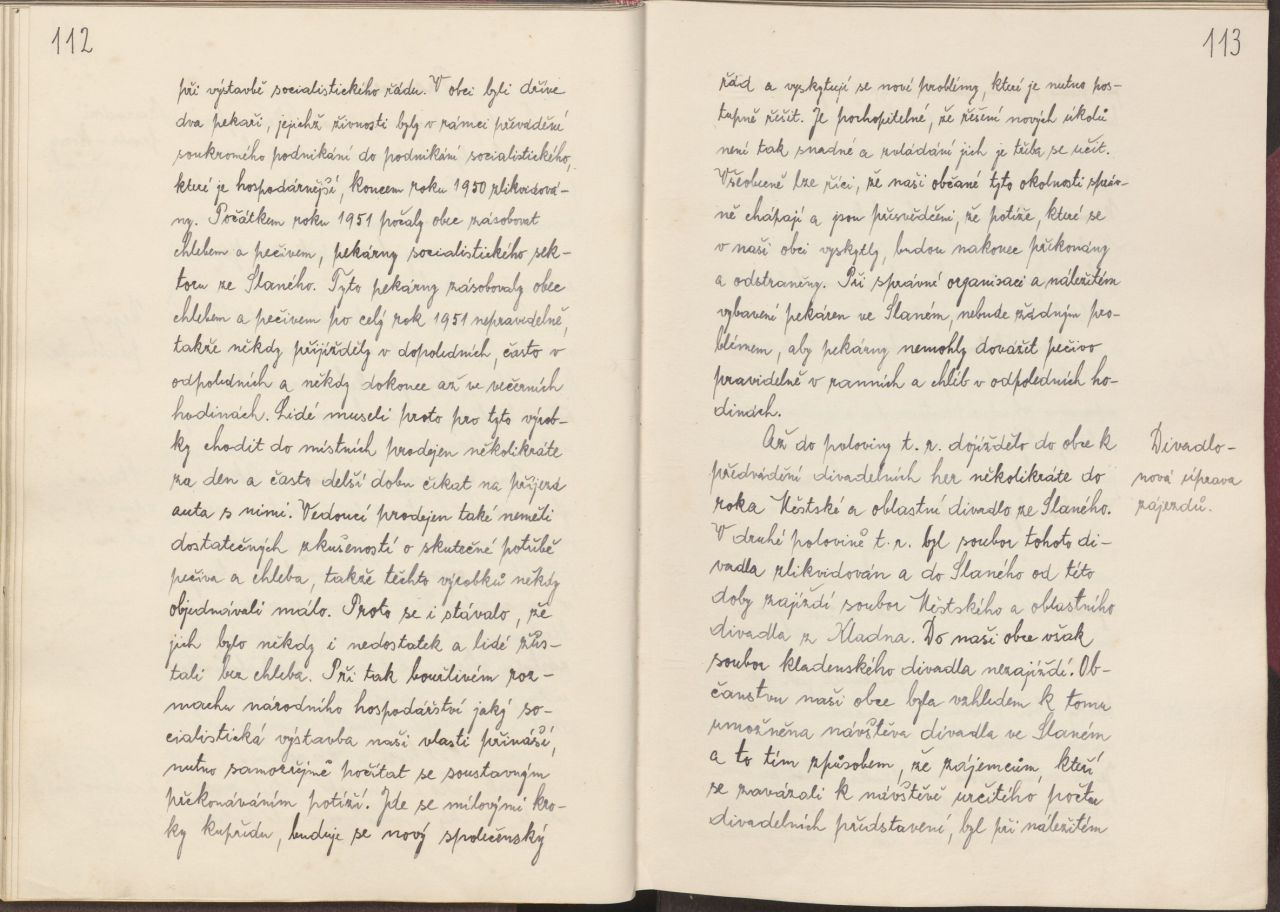 112
při výstavbě socialistického řádu. V obci byli dříve
dva pekaři, jejichž živnosti byly v rámci převádění
soukromého podnikání do podnikání socialistického,
které je hospodárnější, koncem roku 1950 zlikvidová-
ny. Počátkem roku 1951 počaly obec zásobovat
chlebem a pečivem, pekárny socialistického sek-
toru ze Slaného. Tyto pekárny zásobovaly obec
chlebem a pečivem po celý rok 1951 nepravidelně,
takže někdy přijížděly v dopoledních, často v
odpoledních a někdy dokonce až ve večerních
hodinách. Lidé museli proto pro tyto výrob-
ky chodit do místních prodejen několikráte
za den a často delší dobu čekat na příjezd
auta s nimi. Vedoucí prodejen také neměli
dostatečných zkušeností o skutečné potřebě
pečiva a chleba, takže těchto výrobků někdy
objednávali málo. Proto se i stávalo, že
jich bylo někdy i nedostatek a lidé zůs-
tali bez chleba. Při tak bouřlivém roz-
machu národního hospodářství jaký so-
cialistická výstavba naší vlasti přináší,
nutno samozřejmě počítat se soustavným
překonáváním potíží. Jde se mílovými kro-
ky kupředu, buduje se nový společenský
113
řád a vyskytují se nové problémy, které je nutno pos-
tupně řešit. Je pochopitelné, že řešení nových úkolů
není tak snadné a zvládání jich je třeba se učit.
Všeobecně lze říci, že naši občané tyto okolnosti správ-
ně chápají a jsou přesvědčeni, že potíže, které se
v naší obci vyskytly, budou nakonec překonány
a odstraněny. Při správné organisaci a náležitém
vybavení pekáren ve Slaném, nebude žádným pro-
blémem, aby pekárny nemohly dovážet pečivo
pravidelně v ranních a chléb v odpoledních ho-
dinách.
Až do poloviny t. r. dojíždělo do obce k
předvádění divadelních her několikráte do
roka Městské a oblastní divadlo ze Slaného.
V druhé polovině t. r. byl soubor tohoto di-
vadla zlikvidován a do Slaného od této
doby zajíždí soubor Městského a oblastního
divadla z Kladna. Do naší obce však
soubor kladenského divadla nezajíždí. Ob-
čanstvu naší obce byla vzhledem k tomu
umožněna návštěva divadla ve Slaném
a to tím způsobem, že zájemcům, kteří
se zavázali k návštěvě určitého počtu
divadelních představení, byl při náležitém
Divadlo-
nová úprava
zájezdů.